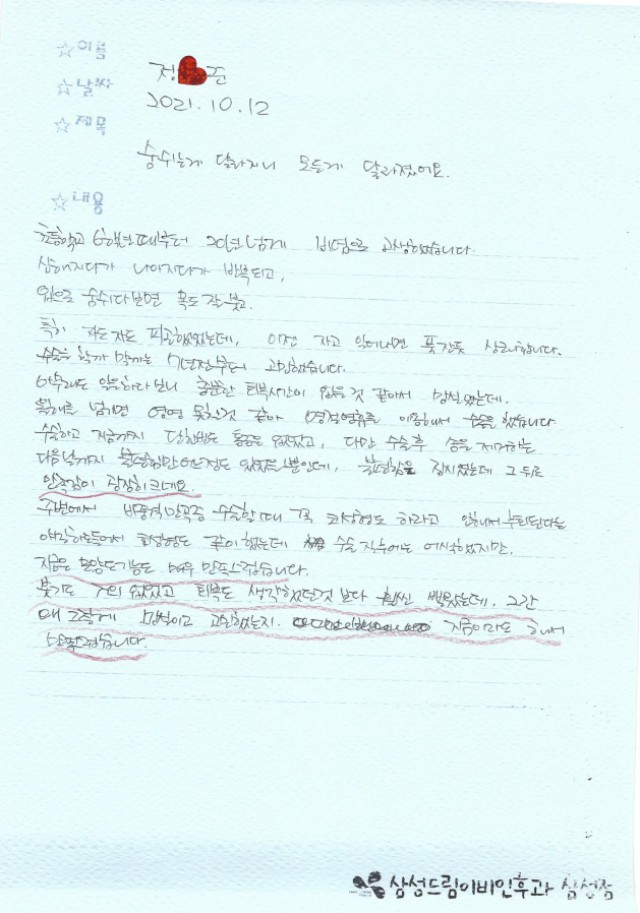 ☆이름
정❤준
☆날짜
2021.10.12
☆제목
숨쉬는게 달라지니 모든게 달라졌어요.
☆내용
초등학교 6학년때부터 20년넘게 비염으로 고생했었습니다
심해지다가 나아지다가 반복되고,
입으로 숨쉬다보면 목도 잘 붓고.
특히 자도자도 피곤했었는데, 이젠 자고 일어나면 푹잔듯 상쾌합니다.
수술을 할까 말까는 7년전부터 고민했습니다.
아무래도 일을하다보니 충분한 회복시간이 없을 것 같아서 망설였는데.
올해를 넘기면 영영 못할것 같아 명절연휴를 이용해서 수술을 했습니다
수술하고 지금까지 당황할 통증은 없었고, 다만 수술후 솜을 제거하는
다음날까지 불편함만 어느정도 있었을뿐인데, 불편함은 잠시였는데 그 뒤로
만족감이 굉장히 크네요.
주변에서 비중격만곡증 수술할때 꼭 코성형도 하라고 안해서 후회된다는
얘길하도들어서 코성형도 같이 했는데 수술 직후에는 어색했지만.
지금은 모양도 기능도 매우 만족스럽습니다.
붓기도 거의 없었고 회복도 생각했던것 보다 훨씬 빨랐는데. 그간
왜 그렇게 망설이고 고민했는지. 지금이라도 해서
만족스럽습니다.
삼성드림이비인후과 삼성점